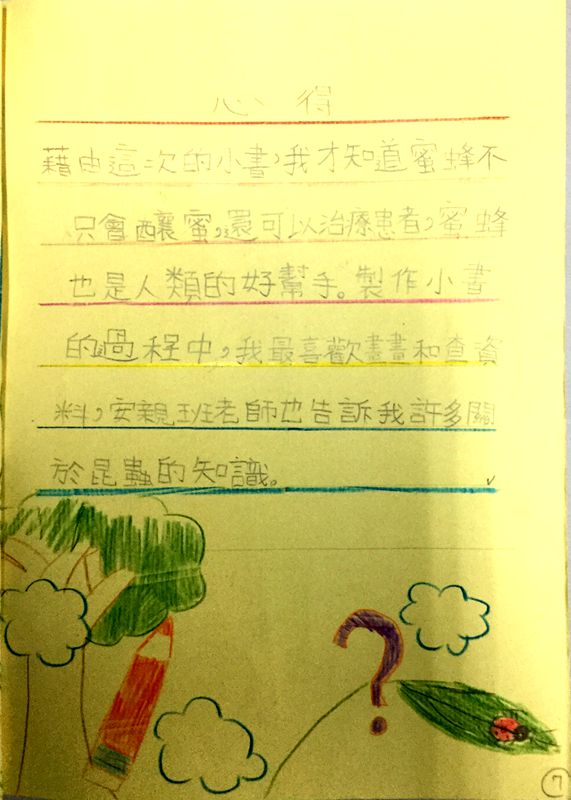 心得
藉由這次的小書，我才知道蜜蜂不
只會釀蜜，還可以治療患者，蜜蜂
也是人類的好幫手。製作小書
的過程中，我最喜歡畫畫和查資
料，安親班老師也告訴我許多關
於昆蟲的知識。
?
7